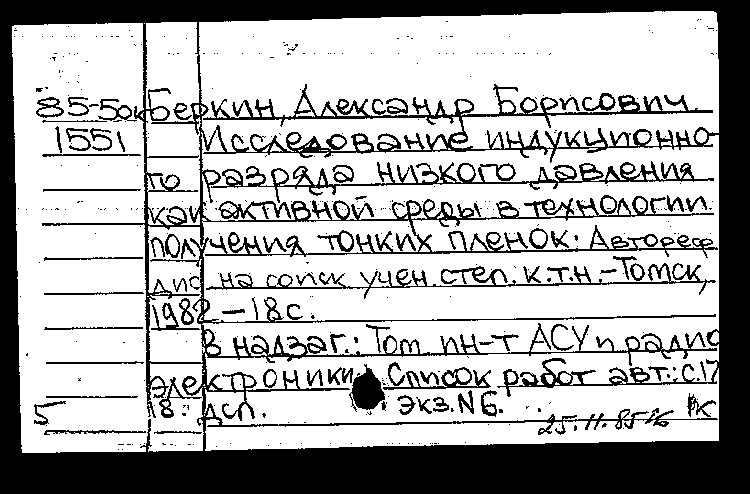 85-5ок Беркин, Александр Борисович.
1551 Исследование индукционно-
го разряда низкого давления
как активной среды в технологии
получения тонких пленок: Автореф
дис на соиск учен. степ. к.т.н. - Томск,
1982 - 18 с.
В надзаг.: Том ин-т АСУ и радио
электроники Список работ авт.: с. 17
18. дсп. Экз. N6.
5 25.11.85